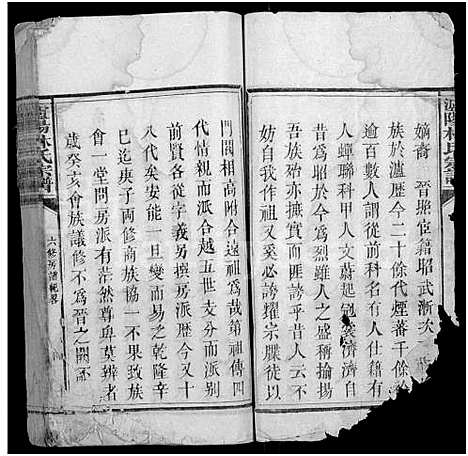 嫡裔　晉熙宦籍昭武漸次
族於瀘歷今二十餘代煙蕃千餘
逾百數人謂從前一經
人蟬聯科甲人文蔚起冠裳濟濟自
昔為昭於今為烈雖人之盛稱揄揚
吾族殆亦摭實而匪誇乎昔人云不
妨自我作祖又奚必謗耀宗牒徒以
門閥相高附合遠祖為哉第祖傳四
代情親而派合越五世支分而派別
前賢各從字義男撰房派歷今又十
八代矣安能一旦變而易之乾隆辛
巳迄庚子兩修商族協一不果致族
會一堂問房派有茫然尊卑莫辨者
歲癸亥會族議修不為晉之闕不
瀘陽林氏宗譜
六修房譜紀畧
瀘陽林氏宗譜